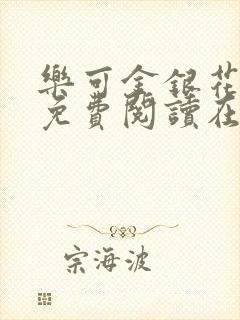 樂可金銀花
免費閱讀在
宗海波